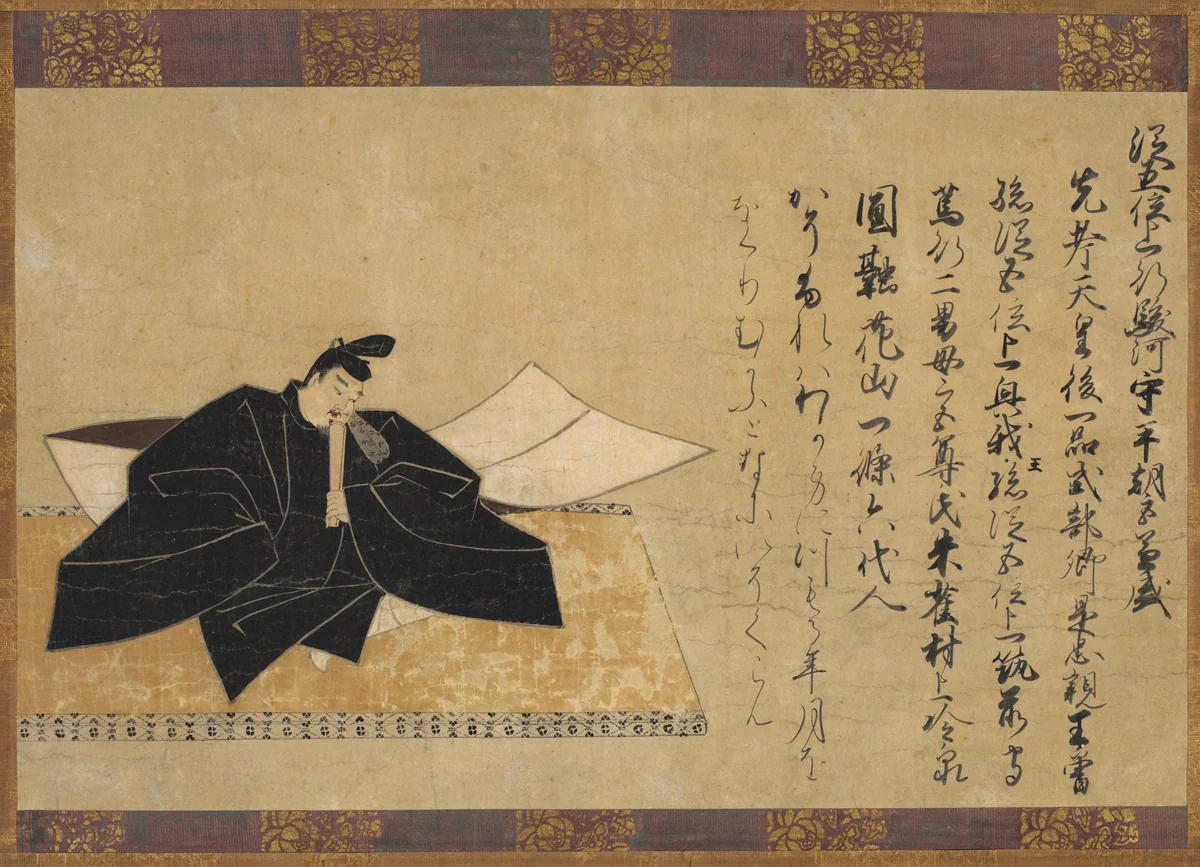 従五位上行駿河守平朝臣兼盛
光孝天皇後一品式部卿是忠親王曾
孫従五位上興我王孫従五位上筑前守
篤行二男母朱雀村上冷泉
圓融花山一條六代人
かそふれハわか身につもる年月を
をくりむかふとなにいそくらん